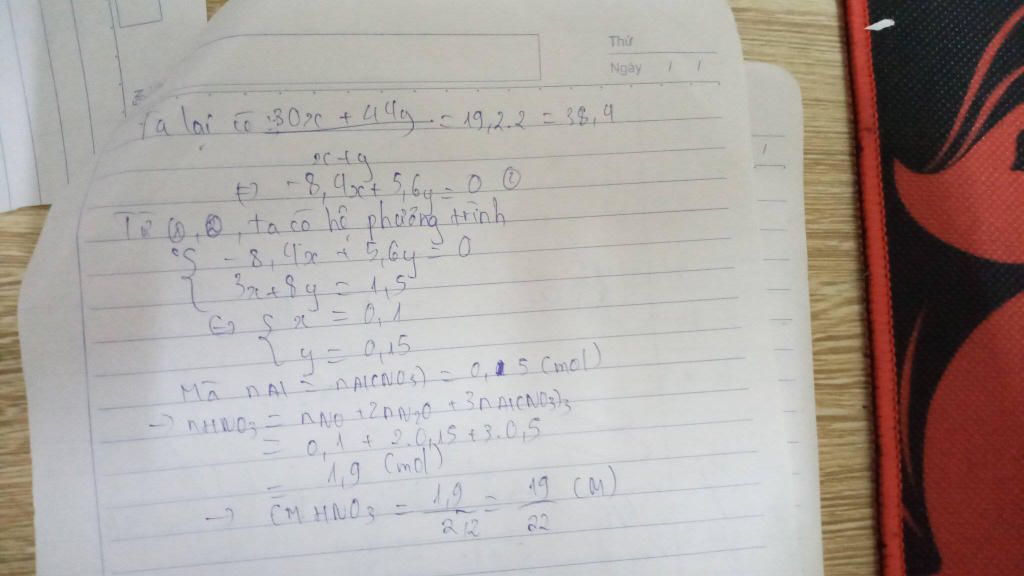 Thứ
Ngày / /
Ta lại có 30x + 44y = 19,2.2 = 38,4
x+y
⇔ -8,4x + 5,6y = 0 ②
Từ ①, ②, ta có hệ phương trình
{ -8,4x + 5,6y = 0
3x + 8y = 1,5
⇔ { x = 0,1
y = 0,15
Mà nAl = nAl(NO3) = 0,5 (mol)
→ nHNO3 = nNO + 2nN2O + 3nAl(NO3)3
= 0,1 + 2.0,15 + 3.0,5
= 1,9 (mol)
→ CM HNO3 = 1,9/2,2 = 19/22 (M)